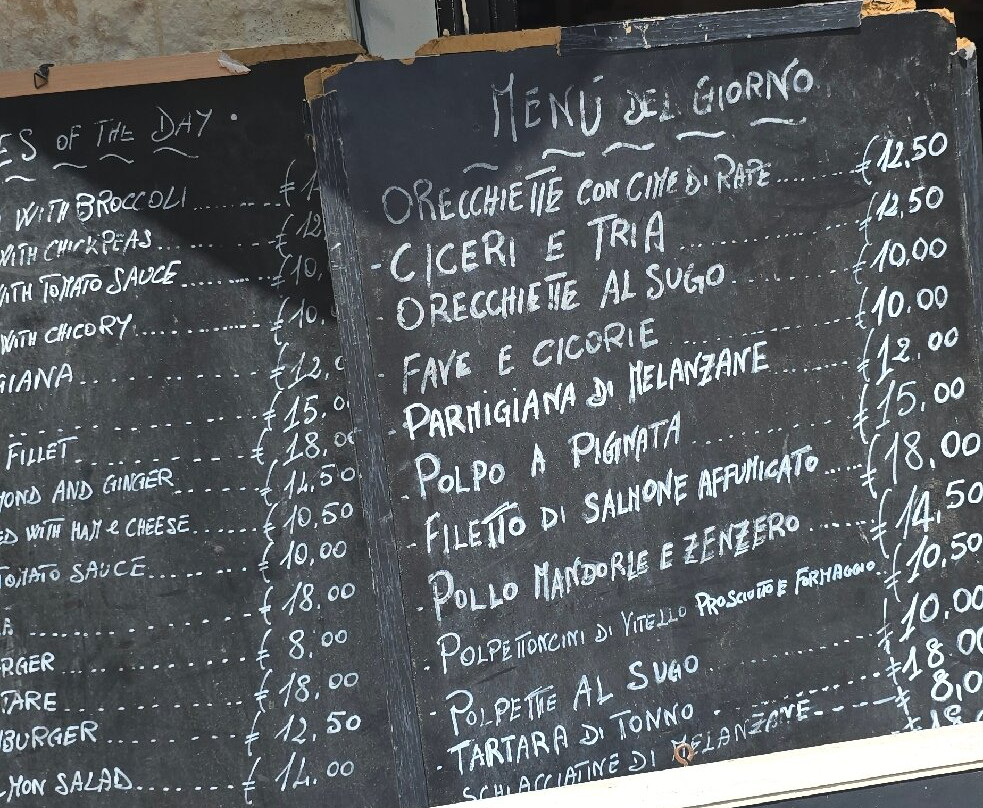 ES OF THE DAY
WITH BROCCOLI ........ €
WITH CHICKPEAS ........ € 12
WITH TOMATO SAUCE ........ € 10,
WITH CHICORY ........ € 10,
GIANA ........ € 12,0
........ € 15,0
FILLET ........ € 18,00
MOND AND GINGER ........ € 14,50
ED WITH HAM & CHEESE ........ € 10,50
TOMATO SAUCE ........ € 10,00
A ........ € 18,00
RGER ........ € 8,00
TARE ........ € 18,00
BURGER ........ € 12,50
LMON SALAD ........ € 14,00
MENÚ DEL GIORNO
ORECCHIETTE CON CIME DI RAPE ........ € 12,50
- CICERI E TRIA ........ € 12,50
- ORECCHIETTE AL SUGO ........ € 10,00
- FAVE E CICORIE ........ € 10,00
- PARMIGIANA DI MELANZANE ........ € 12,00
- POLPO A PIGNATA ........ € 15,00
- FILETTO DI SALMONE AFFUMICATO ..... € 18,00
- POLLO MANDORLE E ZENZERO ........ € 14,50
- POLPETTONCINI DI VITELLO PROSCIUTTO E FORMAGGIO .. € 10,50
- POLPETTE AL SUGO ........ € 10,00
- TARTARA DI TONNO ........ € 18,00
SCHIACCIATINE DI MELANZANE ........ € 8,0